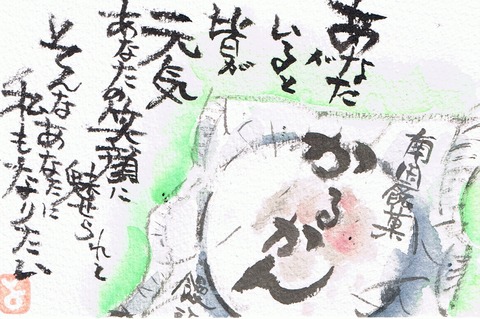 あなたが
いると
皆が
元気
あなたの笑顔に
魅せられて
そんなあなたに
私もなりたい
南国銘菓
かるかん